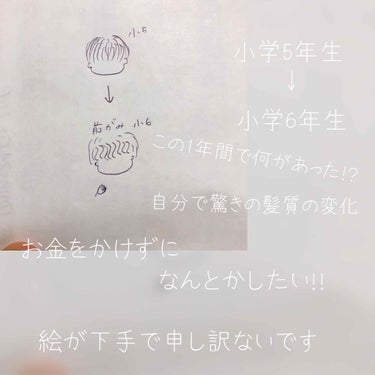 小5
前がみ 小6
小学5年生
↓
小学6年生
この1年間で何があった!?
自分で驚きの髪質の変化
お金をかけずに
なんとかしたい!!
絵が下手で申し訳ないです